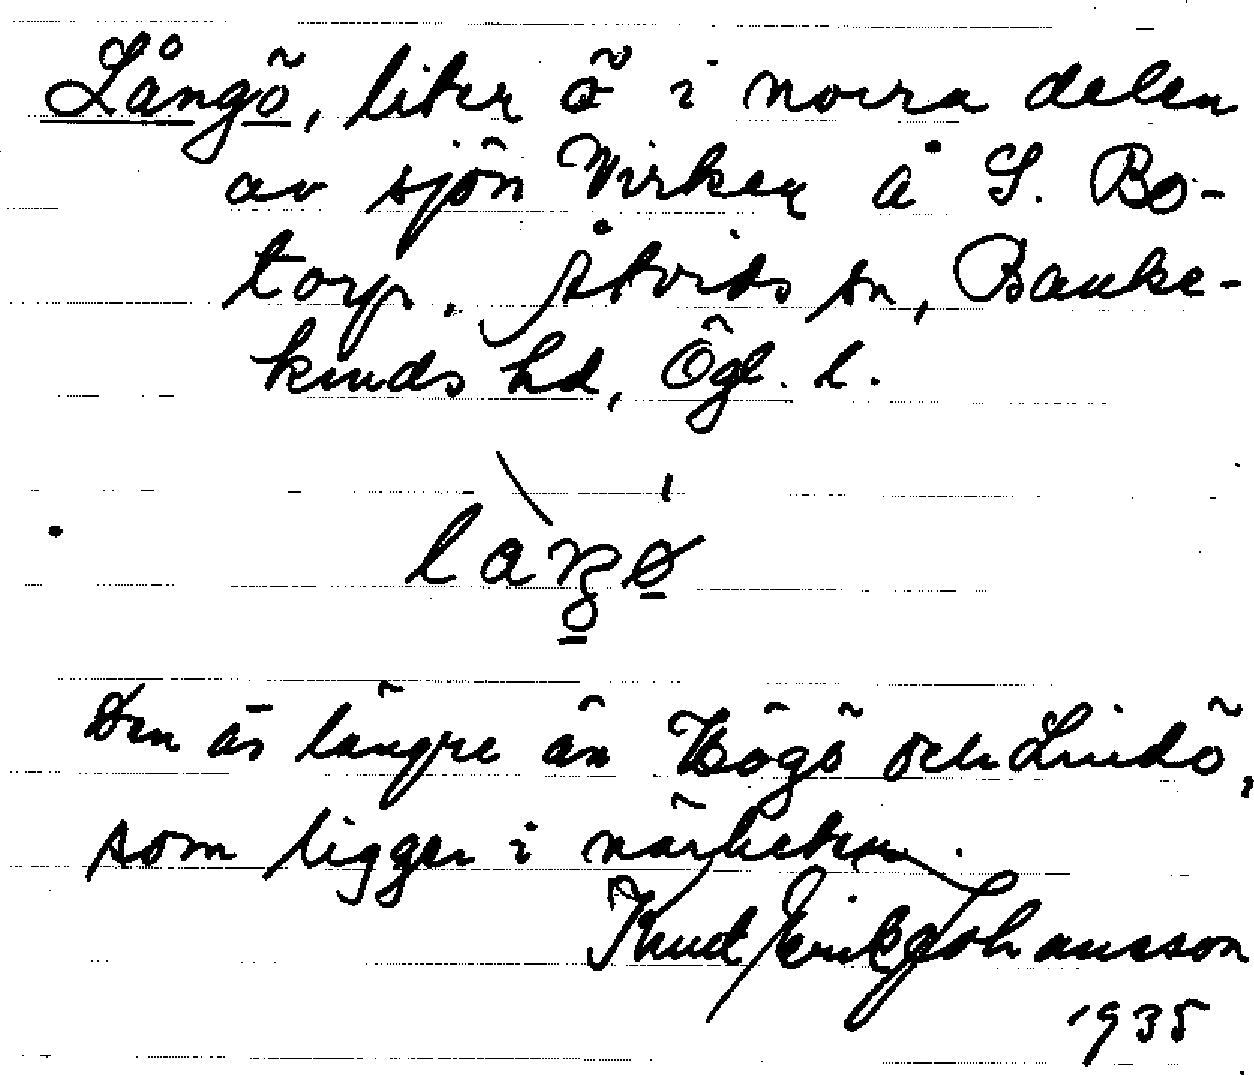 Långö, liten ö i norra delen
av sjön Virken å S. Bo-
torp. Åtvids sn, Banke-
kinds hd, Ögl. l.
Den är längre än Högö och Lindö,
som ligger i närheten.
Knut Erik Johansson
1935